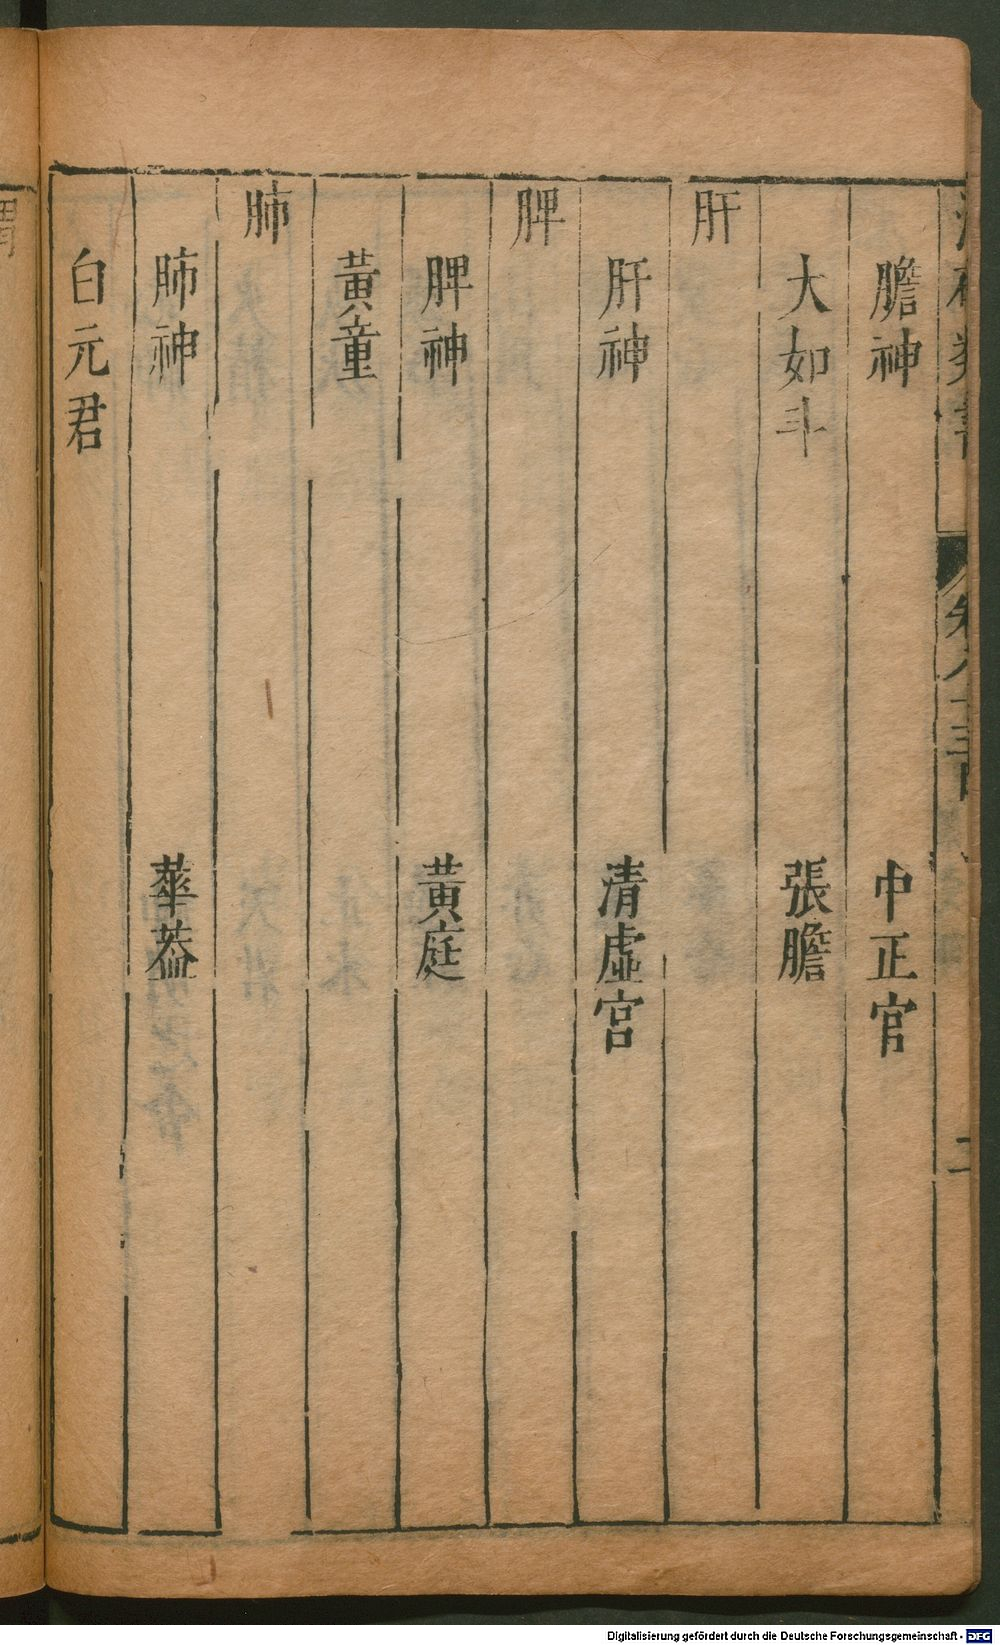 膽神 中正官
大如斗 張膽
肝
肝神 清虛宮
脾
脾神 黃庭
黃童
肺
肺神 華蓋
白元君
二
Digitalisierung gefördert durch die Deutsche Forschungsgemeinschaft - DFG